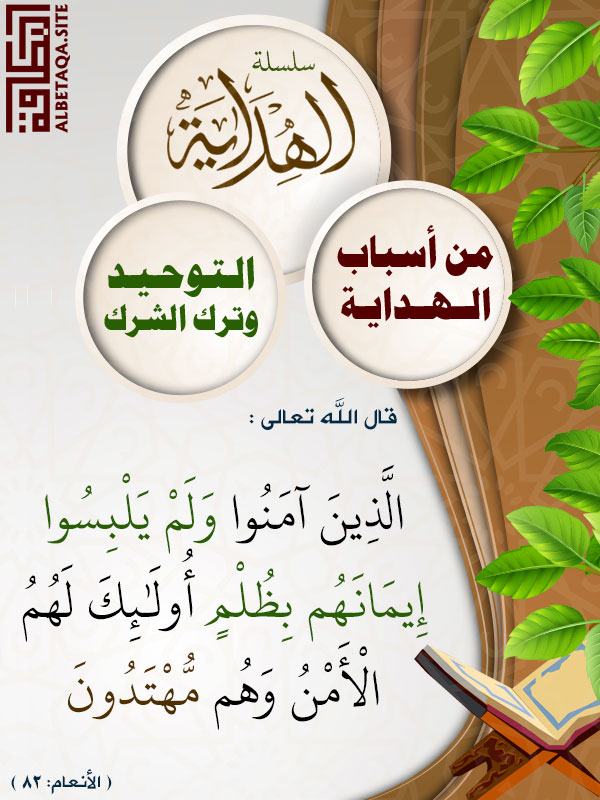 البطاقة
ALBETAQA.SITE
سلسلة
الهداية
من أسباب
الـهـدايـة
التوحيد
وترك الشرك
قال اللَّه تعالى :
الَّذِينَ آمَنُوا وَلَمْ يَلْبِسُوا
إِيمَانَهُم بِظُلْمٍ أُولَٰئِكَ لَهُمُ
الْأَمْنُ وَهُم مُّهْتَدُونَ
( الأنعام: ٨٢ )